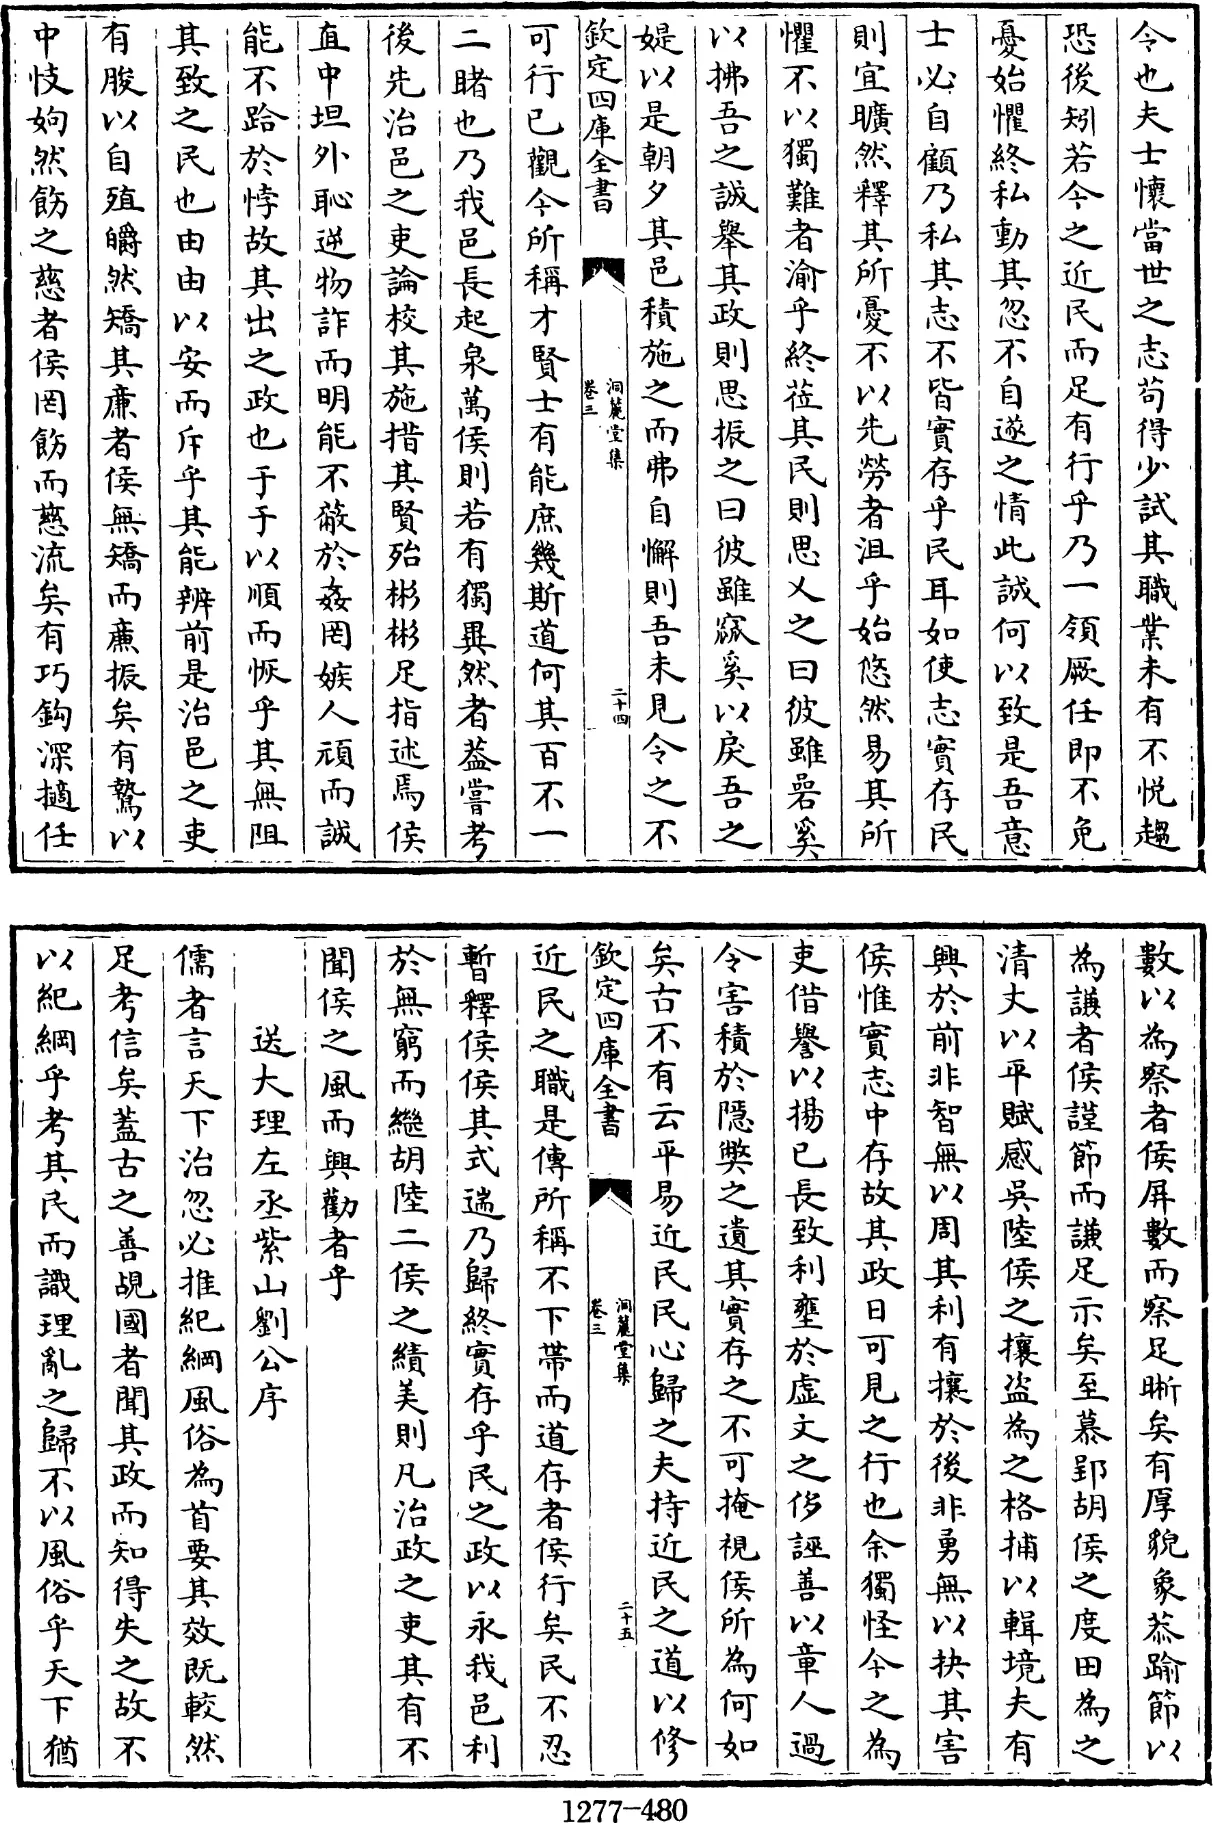 令也夫士懷當世之志苟得少試其職業未有不悅趨
恐後矧若今之近民而足有行乎乃一領厥任即不免
憂始懼終私動其忽不自遂之情此誠何以致是吾意
士必自顧乃私其志不皆實存乎民耳如使志實存民
則宜曠然釋其所憂不以先勞者沮乎始悠然易其所
懼不以獨難者渝乎終蒞其民則思乂之曰彼雖嵒奚
以拂吾之誠舉其政則思振之曰彼雖窳奚以戾吾之
媞以是朝夕其邑積施之而弗自懈則吾未見令之不
欽定四庫全書
洞麓堂集
卷三
二十四
可行已觀今所稱才賢士有能庶幾斯道何其百不一
二睹也乃我邑長起泉萬侯則若有獨異然者葢嘗考
後先治邑之吏論校其施措其賢殆彬彬足指述焉侯
直中坦外恥逆物詐而明能不蔽於姦罔嫉人頑而誠
能不跲於悖故其出之政也于于以順而恢乎其無阻
其致之民也由由以安而斥乎其能辨前是治邑之吏
有朘以自殖皭然矯其廉者侯無矯而廉振矣有鷙以
中忮姁然飭之慈者侯罔飭而慈流矣有巧鈎深擿任
數以為察者侯屏數而察足晰矣有厚貌象恭踰節以
為謙者侯謹節而謙足示矣至慕郢胡侯之度田為之
清丈以平賦感吳陸侯之攘盜為之格捕以輯境夫有
興於前非智無以周其利有攘於後非勇無以抉其害
侯惟實志中存故其政日可見之行也余獨怪今之為
吏借譽以揚已長致利壅於虛文之侈誣善以章人過
令害積於隱獘之遺其實存之不可掩視侯所為何如
矣古不有云平易近民民心歸之夫持近民之道以修
欽定四庫全書
洞麓堂集
卷三
二十五
近民之職是傳所稱不下帶而道存者侯行矣民不忍
暫釋侯侯其式遄乃歸終實存乎民之政以永我邑利
於無窮而繼胡陸二侯之績美則凡治政之吏其有不
聞侯之風而興勸者乎
送大理左丞紫山劉公序
儒者言天下治忽必推紀綱風俗為首要其效既較然
足考信矣蓋古之善覘國者聞其政而知得失之故不
以紀綱乎考其民而識理亂之歸不以風俗乎天下猶
1277-480